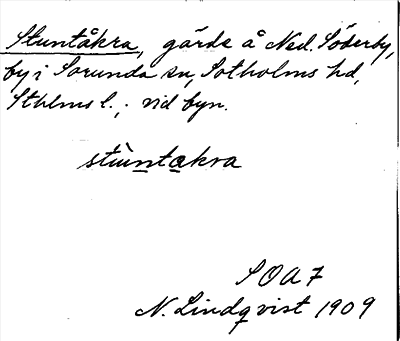 Stuntåkra, gärde å Ned. Söderby,
by i Sorunda sn, Sotholms hd,
Sthlms l.; vid byn.
stùntakra
SOA 7
N. Lindqvist 1909